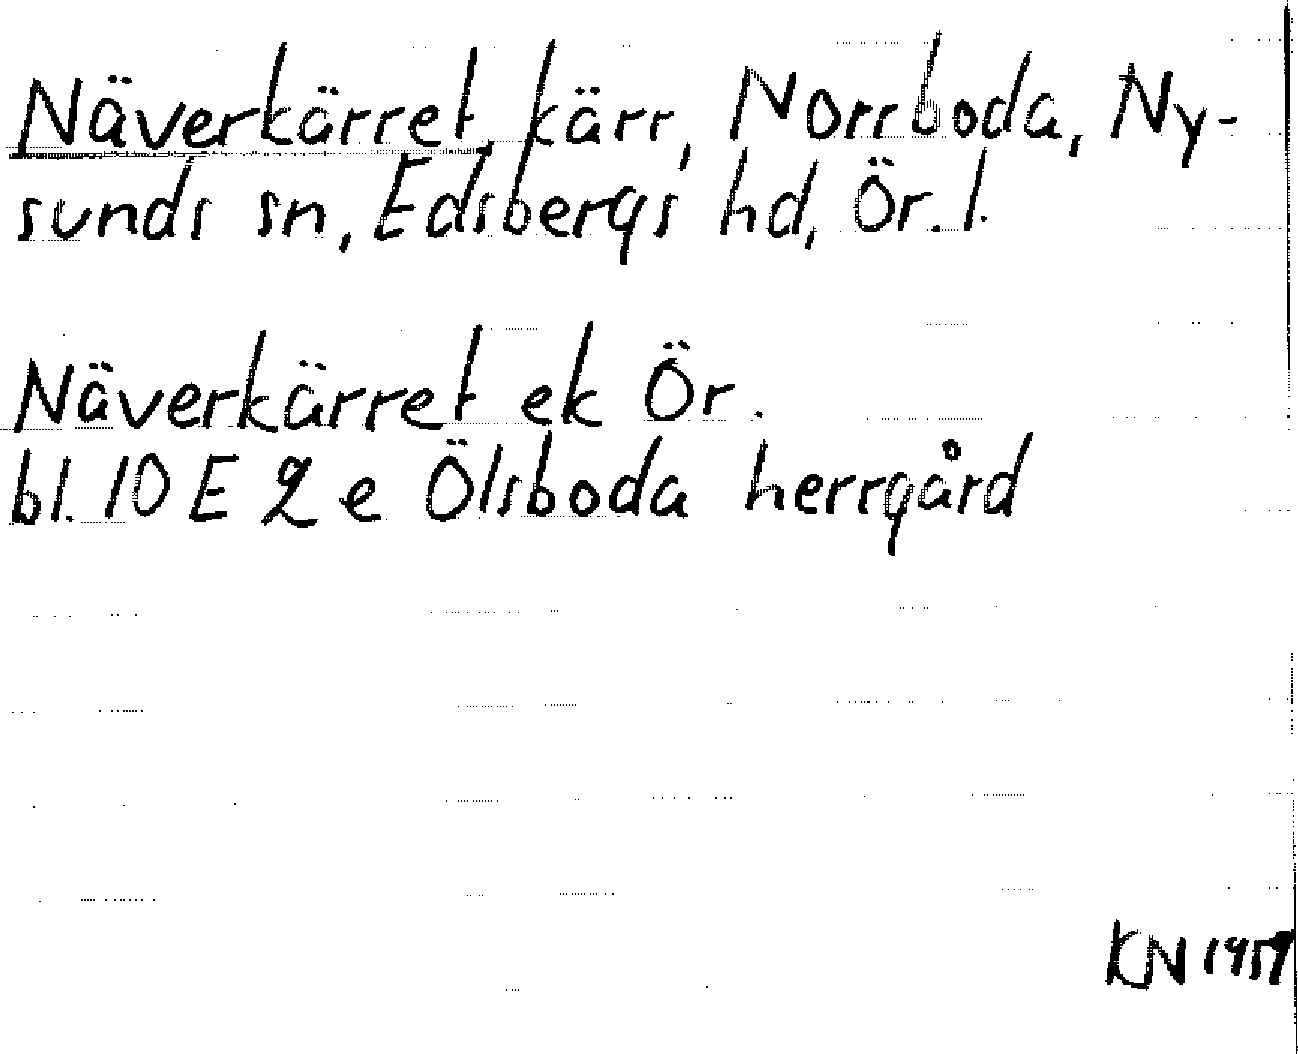 Näverkärret, kärr, Norrboda, Ny-
sunds sn, Edsbergs hd, Ör. l.
Näverkärret ek Ör.
bl. 10 E 2 e Ölsboda herrgård
KN